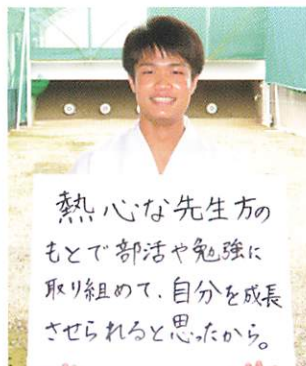 熱心な先生方の
もとで部活や勉強に
取り組めて、自分を成長
させられると思ったから。